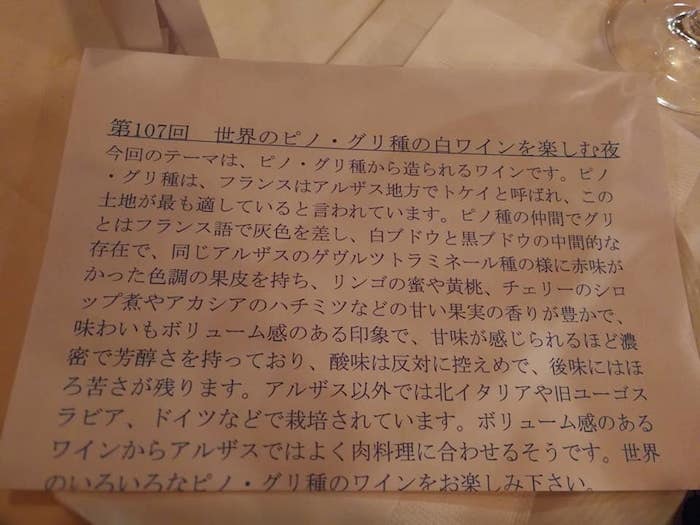 第107回　世界のピノ・グリ種の白ワインを楽しむ夜
今回のテーマは、ピノ・グリ種から造られるワインです。ピノ
・グリ種は、フランスはアルザス地方でトケイと呼ばれ、この
土地が最も適していると言われています。ピノ種の仲間でグリ
とはフランス語で灰色を差し、白ブドウと黒ブドウの中間的な
存在で、同じアルザスのゲヴルツトラミネール種の様に赤味が
かった色調の果皮を持ち、リンゴの蜜や黄桃、チェリーのシロ
ップ煮やアカシアのハチミツなどの甘い果実の香りが豊かで、
味わいもボリューム感のある印象で、甘味が感じられるほど濃
密で芳醇さを持っており、酸味は反対に控えめで、後味にはほ
ろ苦さが残ります。アルザス以外では北イタリアや旧ユーゴス
ラビア、ドイツなどで栽培されています。ボリューム感のある
ワインからアルザスではよく肉料理に合わせるそうです。世界
のいろいろなピノ・グリ種のワインをお楽しみ下さい。